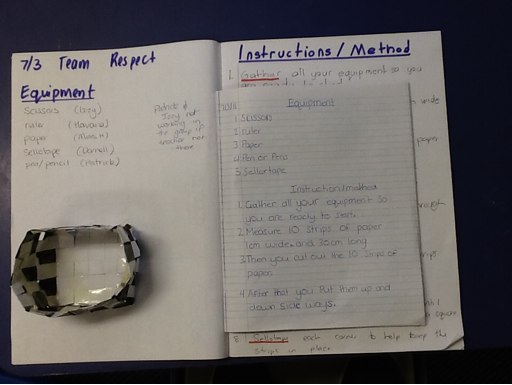 7/3 Team Respect
Equipment
Scissors (Izzy)
ruler (Havana)
paper
Sellotape
pen/pencil (Patrick)
Patrick &
Izzy not
working in
the group if
teacher not
there
Instructions / Method
1. Gather all your equipment so you
wide
paper
Equipment
1 Scissors
2 ruler
3 Paper
4 Pen or Penc
5 Sellortape
Instruction/method
1. Gather all your equipment so
you are ready to start.
2. Measure 10 Strips of paper
1cm wide and 30cm long
3. Then you cut out the 10 Strips of
paper.
4 After that you Put them up and
down side ways.
square
8. Sellotape each corner to help keep the
strips in place.